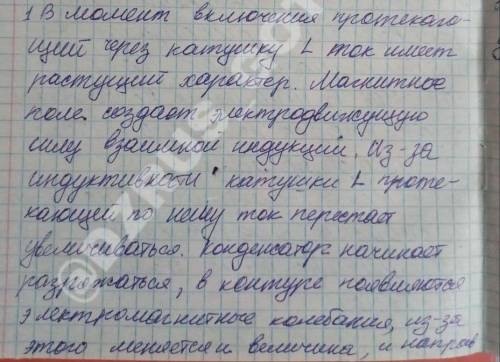 1 В момент включения протекаю-
щий через катушку L ток имеет
растущий характер. Магнитное
поле создает электродвижущую
силу взаимной индукции. Из-за
индуктивности катушки L проте-
кающей по нему ток перестаёт
увеличиваться. Конденсатор начинает
разряжаться, в контуре появляются
электромагнитные колебания, из-за
этого меняется и величина, и направ